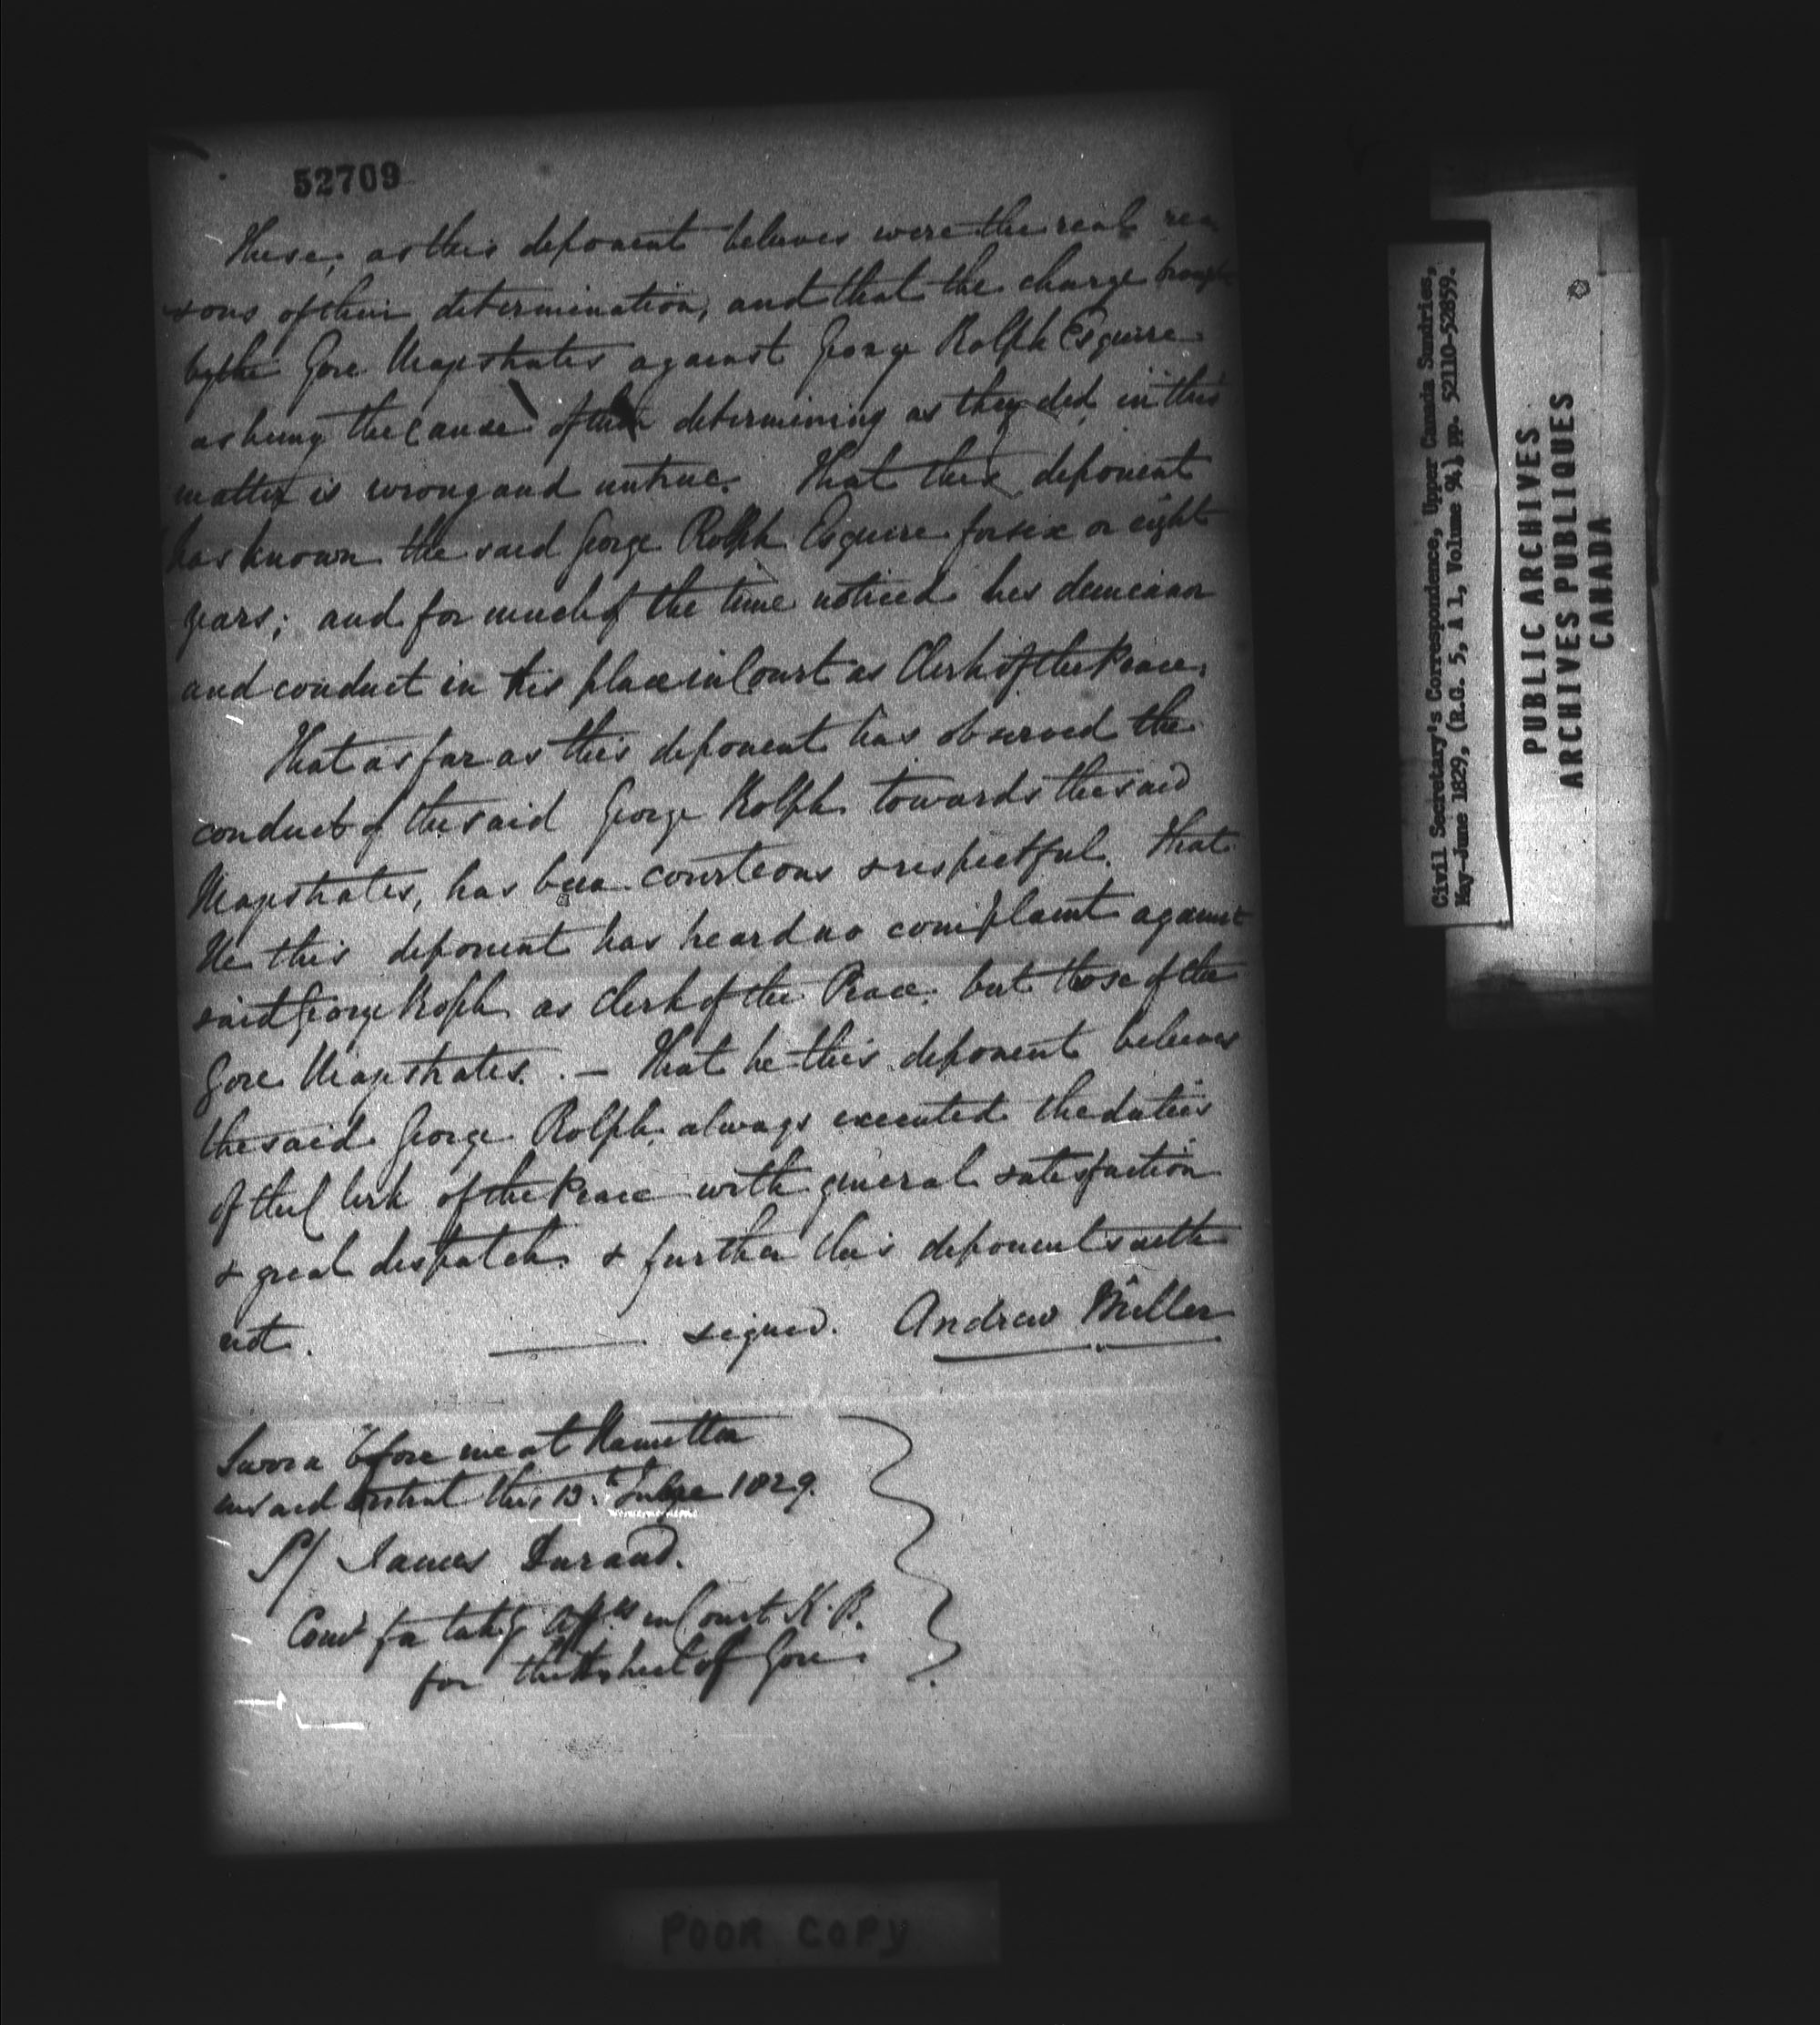 52709
These, as this deponent believes were the real rea
sons of their determination, and that the charge brought
by the Gore Magistrates against George Rolph Esquire
as being the cause of their determining as they did, in this
matter is wrong and untrue. That this deponent
has known the said George Rolph Esquire for six or eight
years; and for much of the time noticed his demeanor
and conduct in his place in Court as Clerk of the Peace.
That as far as this deponent has observed the
conduct of the said George Rolph towards the said
Magistrates, has been courteous & respectful. That
He this deponent has heard no complaint against
said George Rolph as Clerk of the Peace but those of the
Gore Magistrates. — That he this deponent believes
the said George Rolph always executed the duties
of the Clerk of the Peace with general satisfaction
& great despatch & further this deponent saith
not. signed. Andrew Miller
Sworn before me at Hamilton
in said District this 13th 1829.
S/ James Durand.
Comr for takg Affts in Court K. B.
for the District of Gore.
Civil Secretary's Correspondence, Upper Canada Sundries,
May-June 1829, (R.G. 5, A 1, Volume 94) pp. 52110-52859.
PUBLIC ARCHIVES
ARCHIVES PUBLIQUES
CANADA
POOR COPY